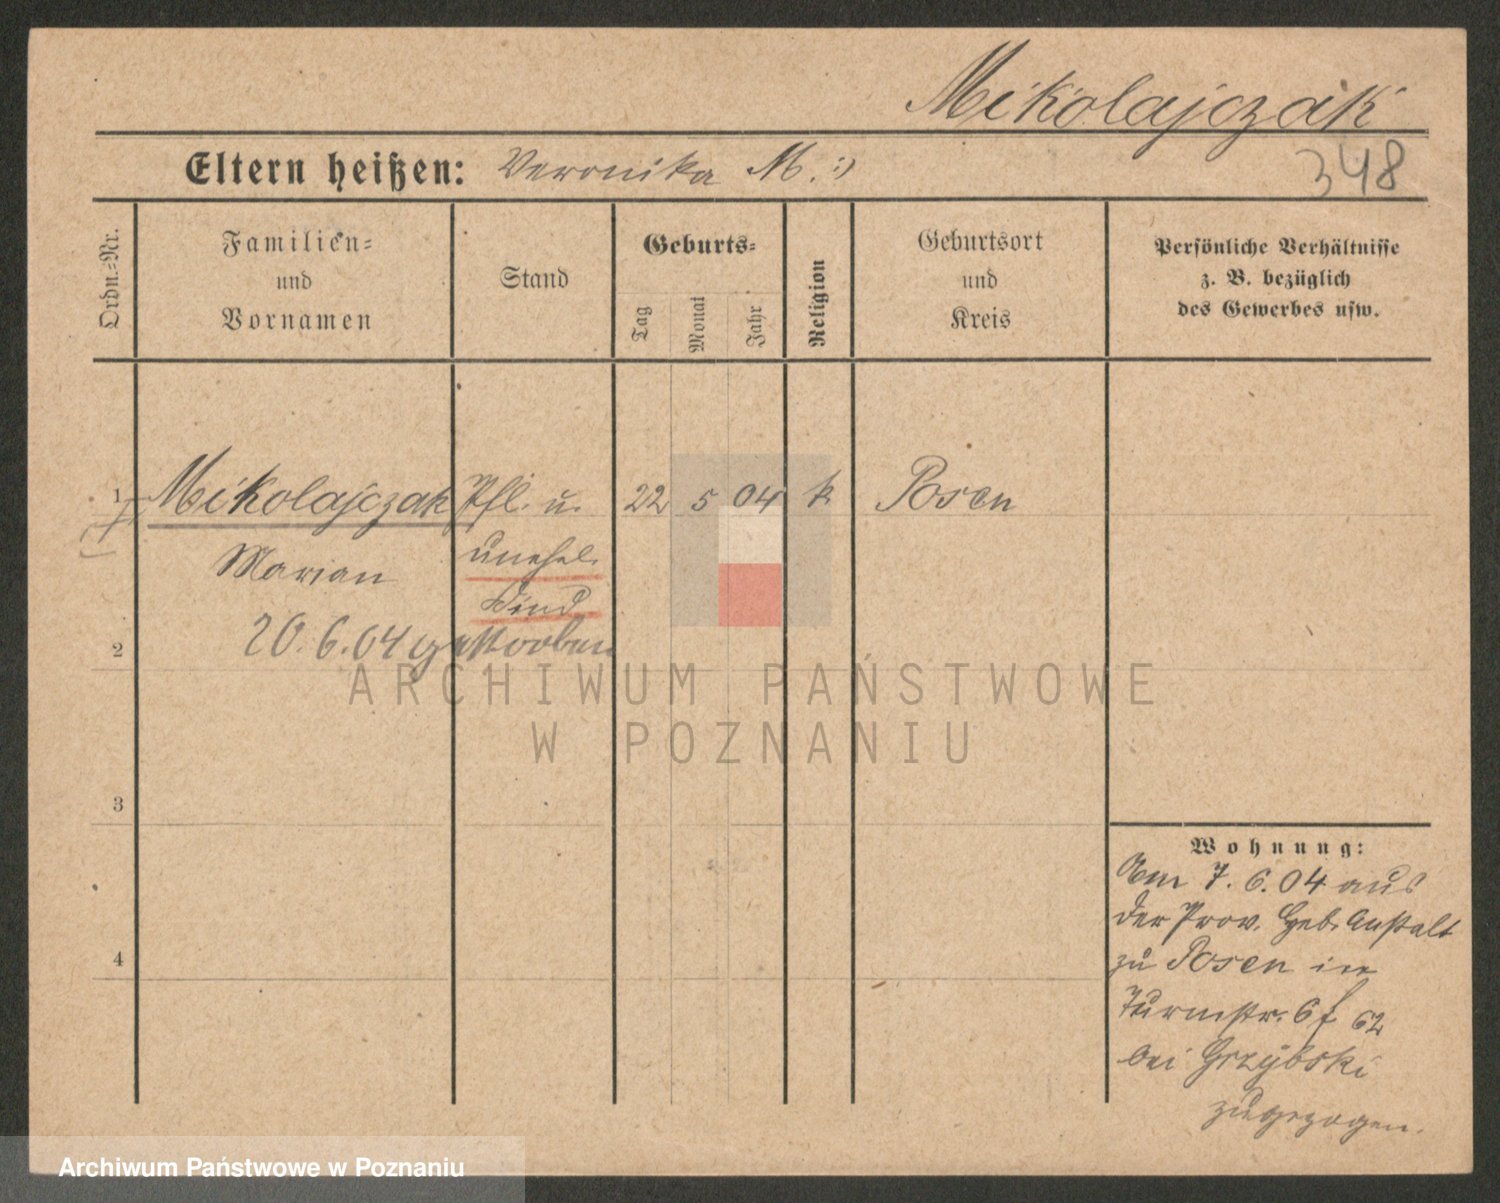 Mikolajczak
Eltern heißen: Veronika M. :)
348
Ordn.=Nr.
Familien=
und
Vornamen
Stand
Geburts=
Tag
Monat
Jahr
Religion
Geburtsort
und
Kreis
Persönliche Verhältnisse
z. B. bezüglich
des Gewerbes usw.
1 Mikolajczak Pfl. u. 22 5 04 k Posen
Marian unehel.
Kind
20.6.04 gestorben
2
ARCHIWUM PAŃSTWOWE
W POZNANIU
3
4
Wohnung:
Am 7. 6. 04 aus
der Prov. Geb. Anstalt
zu Posen in
Turmstr. 6 f 62
bei Grzybski
zugezogen.
Archiwum Państwowe w Poznaniu